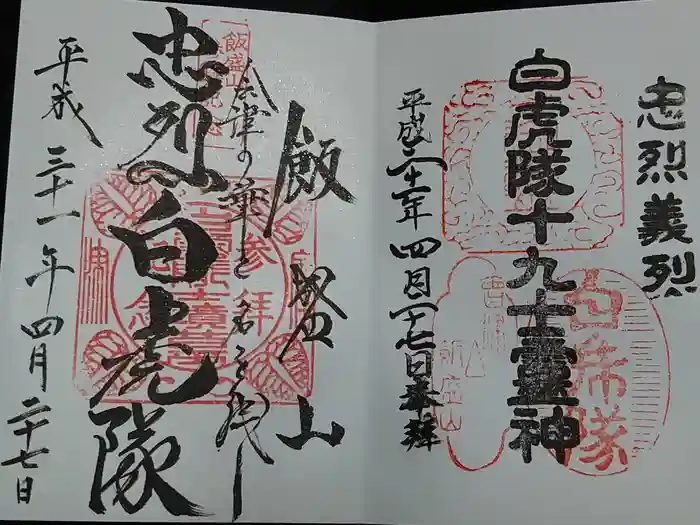 忠烈義烈
白虎隊十九士霊神
平成三十一年四月二十七日奉拝
白虎隊
飯盛山
会津の華と名を残し
忠烈の白虎隊
平成三十一年四月二十七日